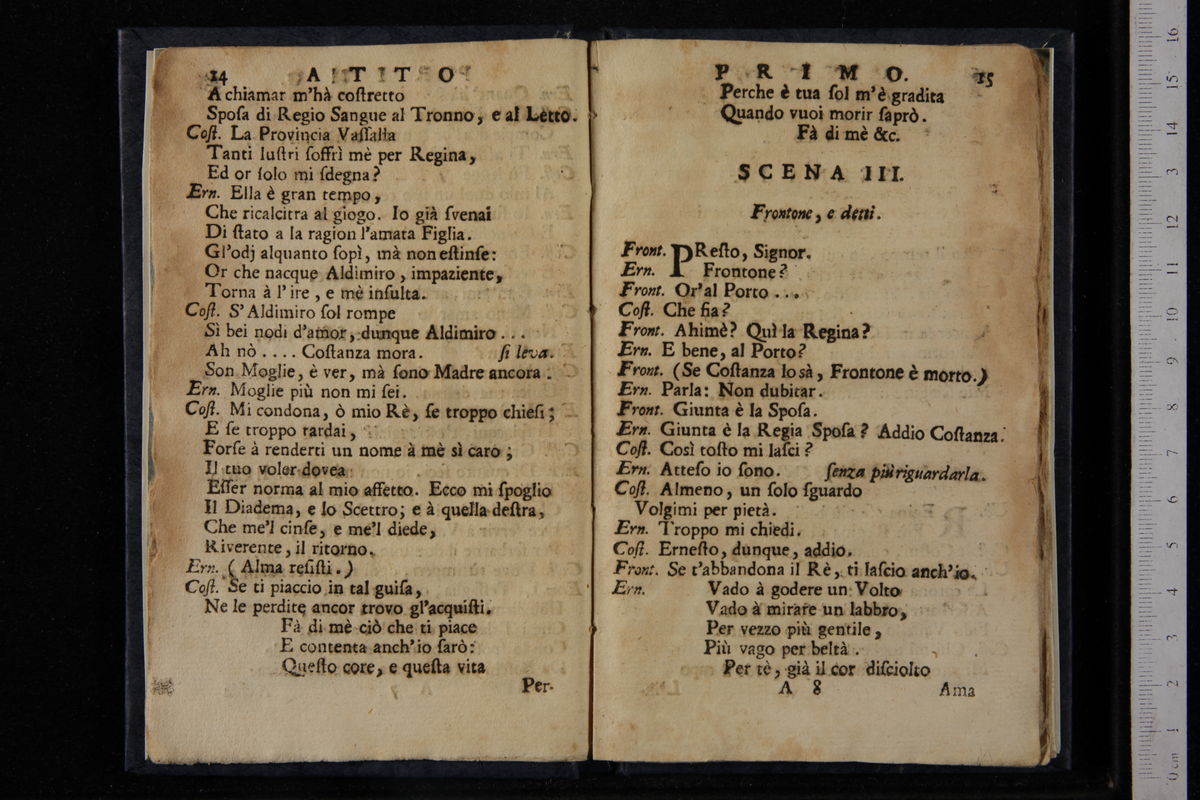 14 ATTTO
A chiamar m'hà coſtretto
Spoſa di Regio Sangue al Tronno, e al Letto.
Coſt. La Provincia Vaſſalla
Tanti luſtri ſoffrì mè per Regina,
Ed or ſolo mi ſdegna?
Ern. Ella è gran tempo,
Che ricalcitra al giogo. Io già ſvenai
Di ſtato a la ragion l'amata Figlia.
Gl'odj alquanto ſopì, mà non eſtinſe:
Or che nacque Aldimiro, impaziente,
Torna à l'ire, e mè inſulta.
Coſt. S'Aldimiro ſol rompe
Sì bei nodi d'amor, dunque Aldimiro ...
Ah nò .... Coſtanza mora. ſi leva.
Son Moglie, è ver, mà ſono Madre ancora.
Ern. Moglie più non mi ſei.
Coſt. Mi condona, ò mio Rè, ſe troppo chieſi;
E ſe troppo tardai,
Forſe à renderti un nome à mè sì caro;
Il tuo voler dovea
Eſſer norma al mio affetto. Ecco mi ſpoglio
Il Diadema, e lo Scettro; e à quella deſtra,
Che me'l cinſe, e me'l diede,
Riverente, il ritorno.
Ern. (Alma reſiſti.)
Coſt. Se ti piaccio in tal guiſa,
Ne le perdite ancor trovo gl'acquiſti.
Fà di mè ciò che ti piace
E contenta anch'io ſarò:
Queſto core, e queſta vita
Per-
PRIMO. 15
Perche è tua ſol m'è gradita
Quando vuoi morir ſaprò.
Fà di mè &c.
SCENA III.
Frontone, e detti.
Front. PReſto, Signor.
Ern. Frontone?
Front. Or'al Porto ...
Coſt. Che fia?
Front. Ahimè? Quì la Regina?
Ern. E bene, al Porto?
Front. (Se Coſtanza lo sà, Frontone è morto.)
Ern. Parla: Non dubitar.
Front. Giunta è la Spoſa.
Ern. Giunta è la Regia Spoſa? Addio Coſtanza.
Coſt. Così toſto mi laſci?
Ern. Atteſo io ſono. ſenza più riguardarla.
Coſt. Almeno, un ſolo ſguardo
Volgimi per pietà.
Ern. Troppo mi chiedi.
Coſt. Erneſto, dunque, addio.
Front. Se t'abbandona il Rè, ti laſcio anch'io.
Ern. Vado à godere un Volto
Vado à mirare un labbro,
Per vezzo più gentile,
Più vago per beltà.
Per tè, già il cor diſciolto
A 8 Ama
0 cm 1 2 3 4 5 6 7 8 9 10 11 12 13 14 15 16